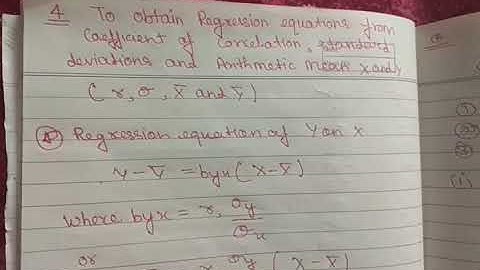 4 To obtain Regression equations from
Coefficient of Correlation, standard
deviations and Arithmetic means x and y
( r, σ, X̅ and Y̅ )
Regression equation of Y on X
Y - Y̅ = byx ( X - X̅ )
where byx = r. σy/σx
or
σy ( X - X̅ )